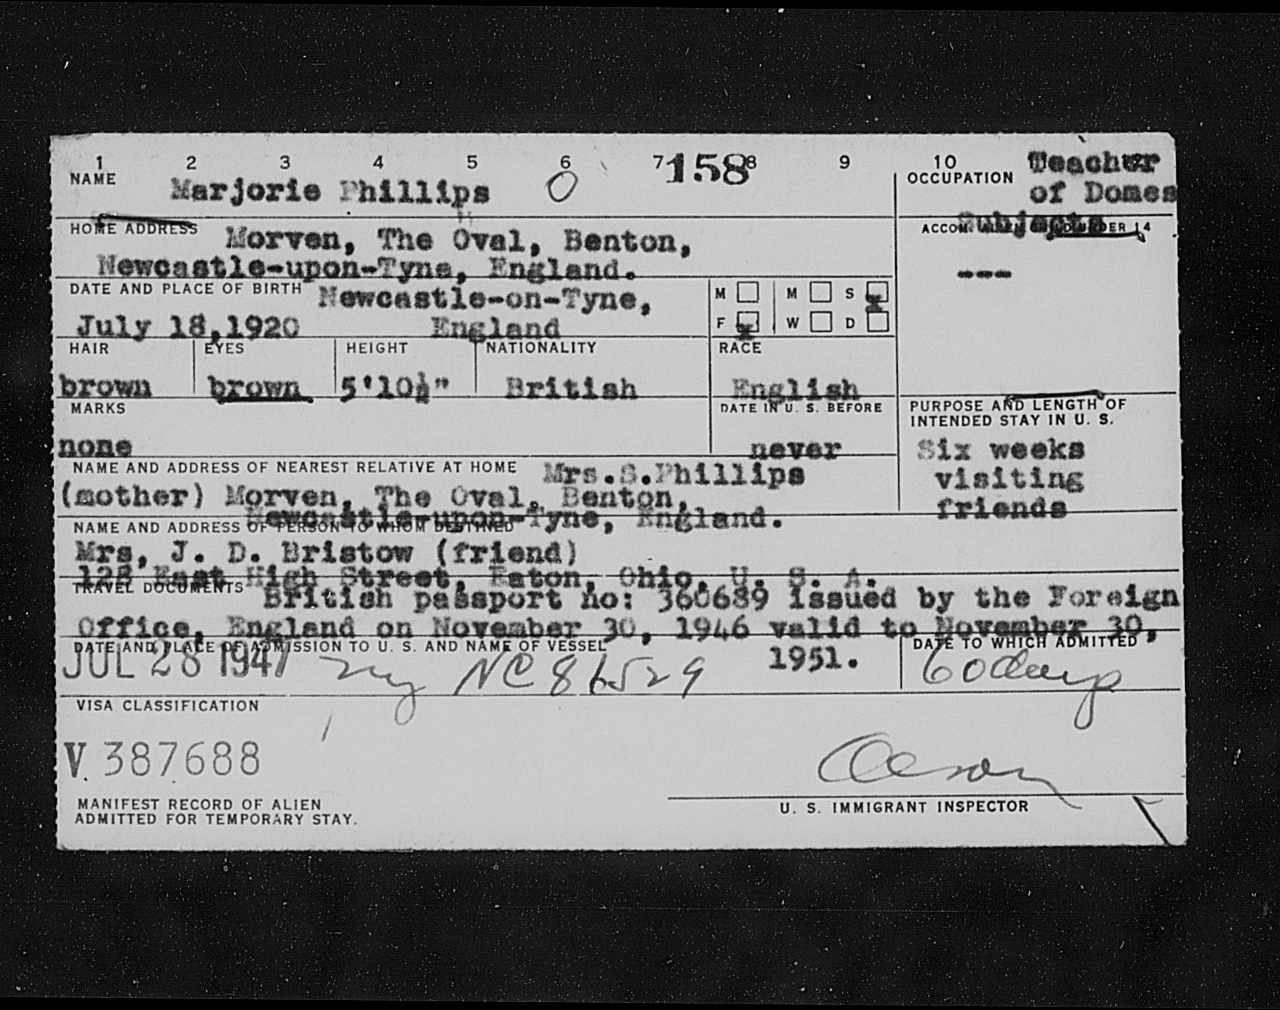 1 2 3 4 5 6 7 158 8 9 10
NAME Marjorie Phillips O OCCUPATION Teacher
of Domes
Subjects
HOME ADDRESS Morven, The Oval, Benton,
Newcastle-upon-Tyne, England.
ACCOM. UNDER 14
---
DATE AND PLACE OF BIRTH Newcastle-on-Tyne,
July 18,1920 England
M M S x
F x W D
HAIR EYES HEIGHT NATIONALITY RACE
brown brown 5'10½" British English
MARKS DATE IN U. S. BEFORE
none never
PURPOSE AND LENGTH OF
INTENDED STAY IN U. S.
Six weeks
visiting
friends
NAME AND ADDRESS OF NEAREST RELATIVE AT HOME Mrs.S.Phillips
(mother) Morven, The Oval, Benton,
Newcastle-upon-Tyne, England.
NAME AND ADDRESS OF PERSON TO WHOM DESTINED
Mrs, J. D. Bristow (friend)
128 East High Street, Eaton, Ohio, U. S. A.
TRAVEL DOCUMENTS British passport no: 360689 issued by the Foreign
Office, England on November 30, 1946 valid to November 30,
1951.
DATE AND PLACE OF ADMISSION TO U. S. AND NAME OF VESSEL DATE TO WHICH ADMITTED
JUL 28 1947 ny NC 86529 60 days
VISA CLASSIFICATION
V. 387688
MANIFEST RECORD OF ALIEN
ADMITTED FOR TEMPORARY STAY.
U. S. IMMIGRANT INSPECTOR